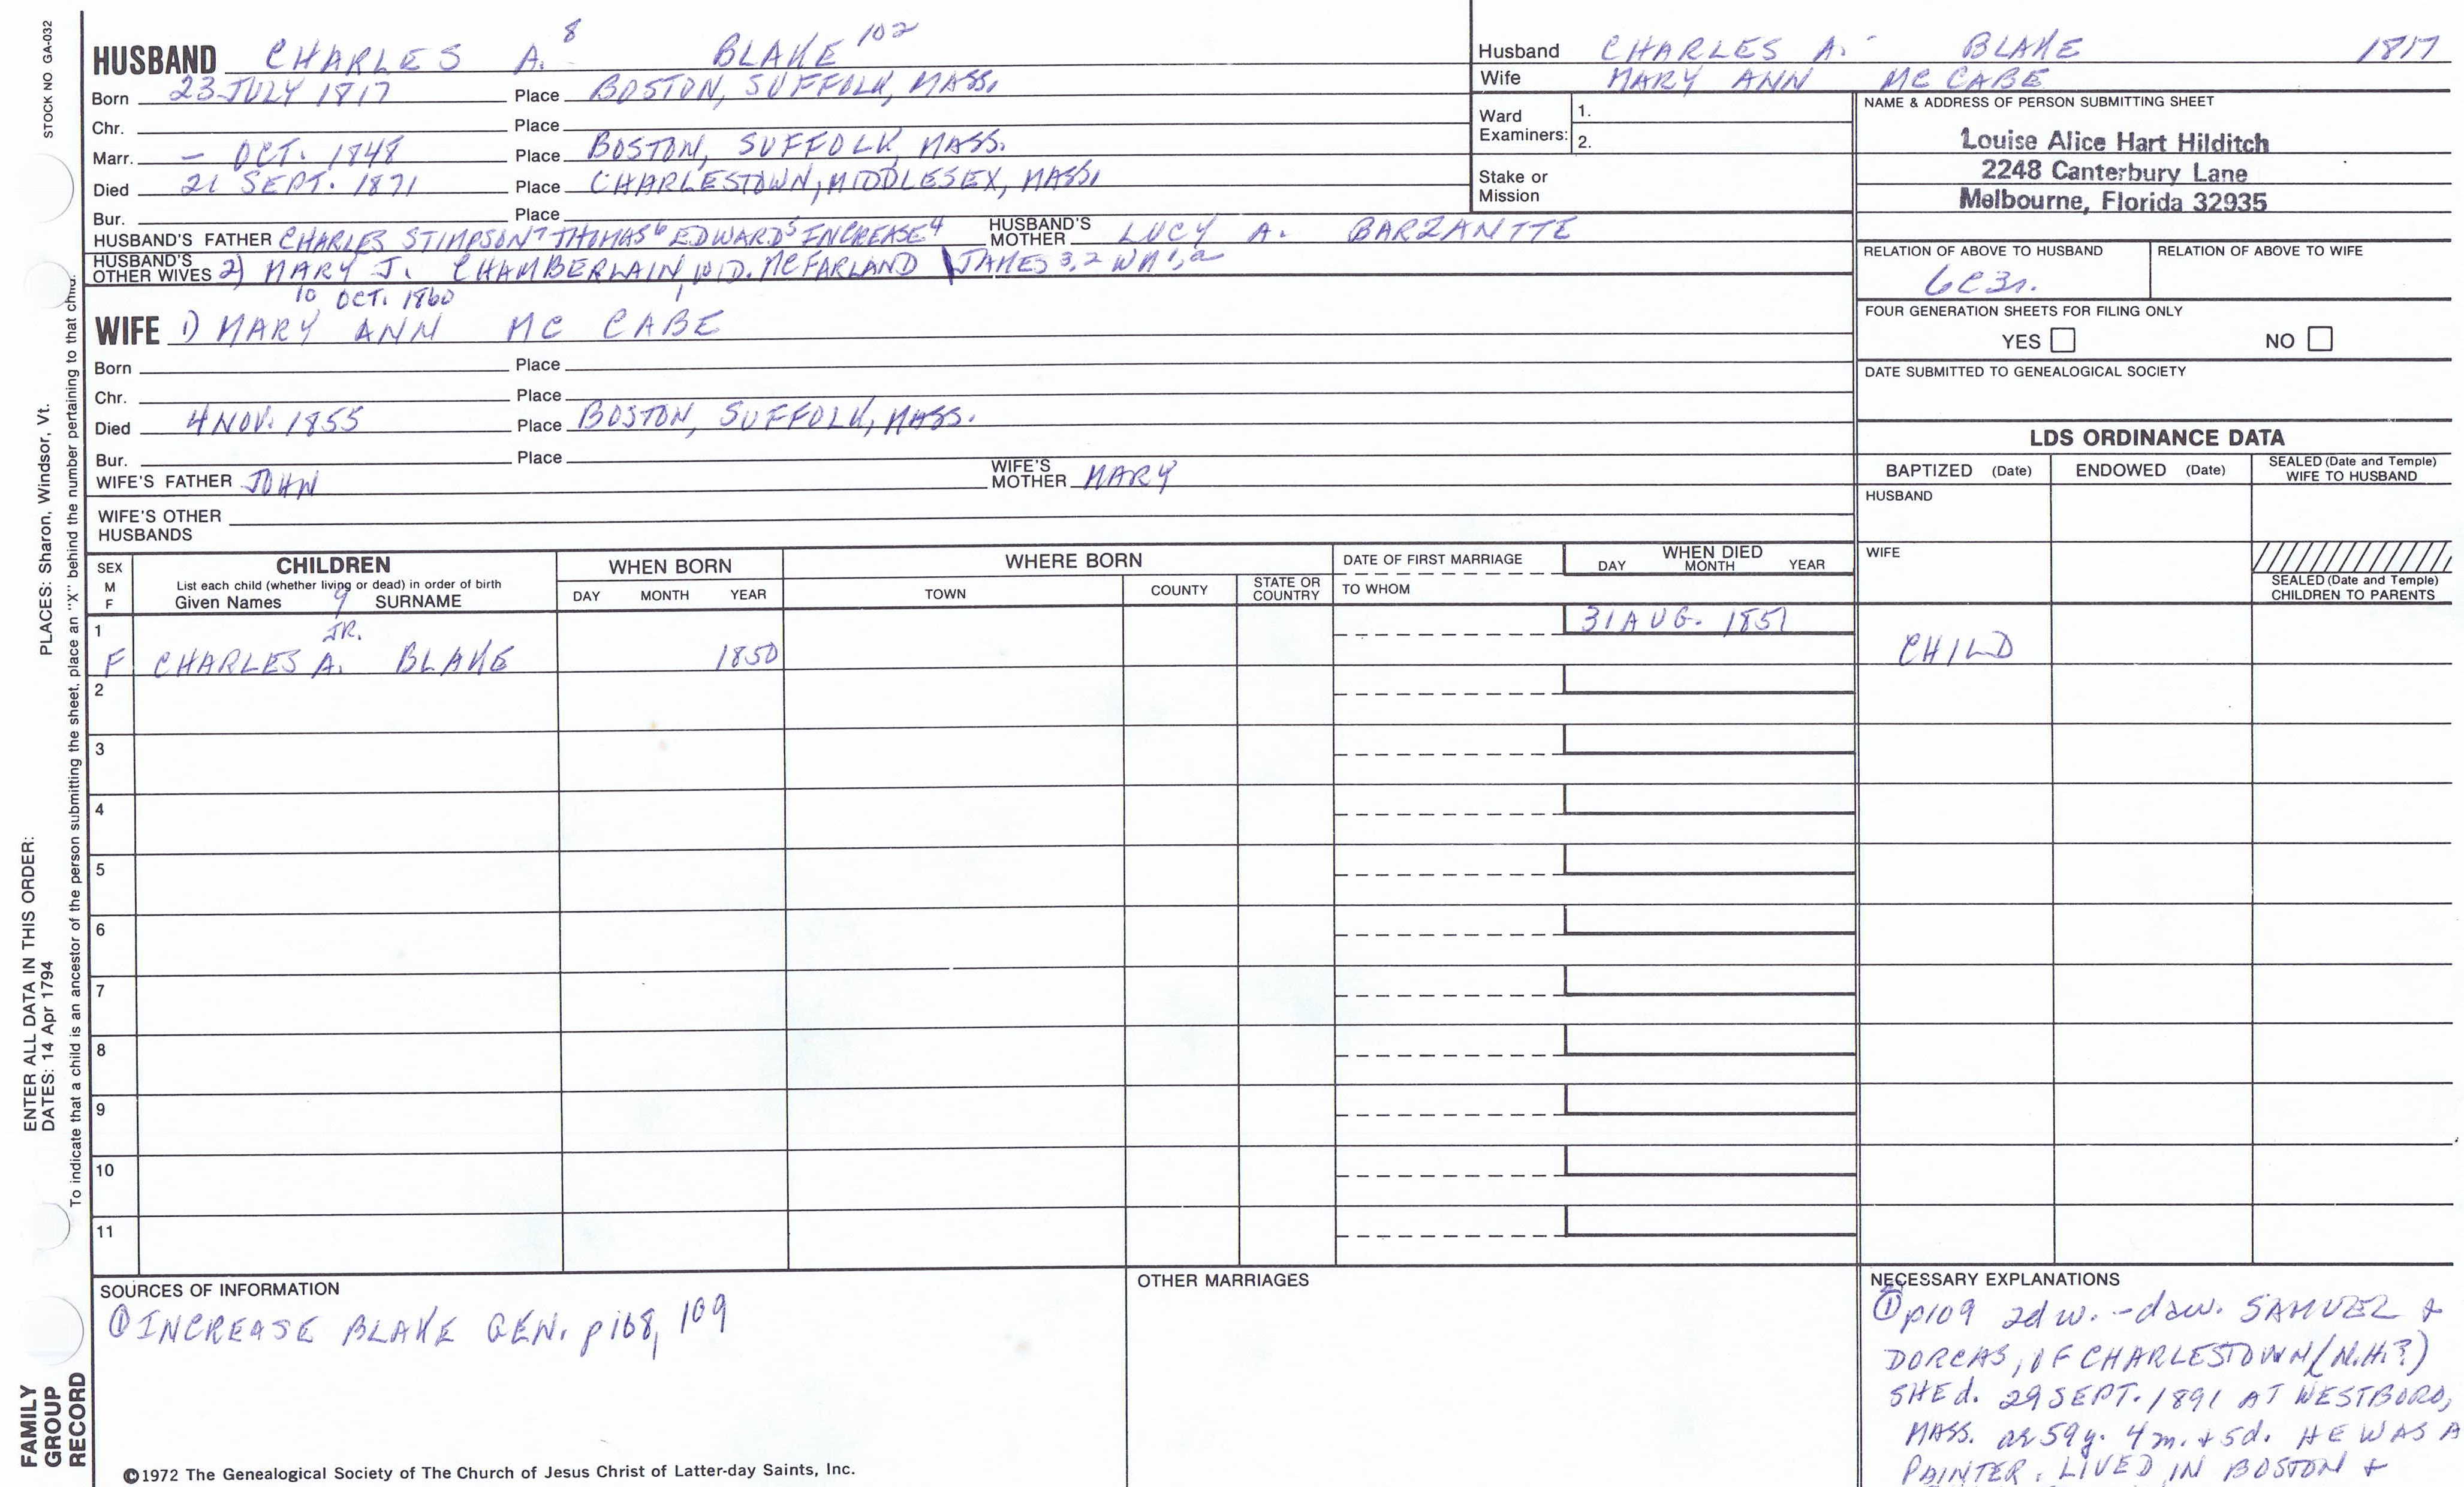 STOCK NO GA-032
HUSBAND CHARLES A.⁸ BLAKE 102
Born 23 JULY 1817 Place BOSTON, SUFFOLK, MASS.
Chr. Place
Marr. – OCT. 1848 Place BOSTON, SUFFOLK, MASS.
Died 21 SEPT. 1871 Place CHARLESTOWN, MIDDLESEX, MASS.
Bur. Place
HUSBAND'S FATHER CHARLES STIMPSON⁷ THOMAS⁶ EDWARD⁵ INCREASE⁴ HUSBAND'S MOTHER LUCY A. BARZANTTE
HUSBAND'S OTHER WIVES 2) MARY J. CHAMBERLAIN, WID. MCFARLAND JAMES 3,2 WM 1,a
10 OCT. 1860
WIFE 1) MARY ANN MC CABE
Born Place
Chr. Place
Died 4 NOV. 1855 Place BOSTON, SUFFOLK, MASS.
Bur. Place
WIFE'S FATHER JOHN WIFE'S MOTHER MARY
WIFE'S OTHER HUSBANDS
Husband CHARLES A. BLAKE 1817
Wife MARY ANN MC CABE
Ward Examiners: 1.
2.
Stake or Mission
NAME & ADDRESS OF PERSON SUBMITTING SHEET
Louise Alice Hart Hilditch
2248 Canterbury Lane
Melbourne, Florida 32935
RELATION OF ABOVE TO HUSBAND RELATION OF ABOVE TO WIFE
6C3r.
FOUR GENERATION SHEETS FOR FILING ONLY
YES NO
DATE SUBMITTED TO GENEALOGICAL SOCIETY
LDS ORDINANCE DATA
BAPTIZED (Date) ENDOWED (Date) SEALED (Date and Temple) WIFE TO HUSBAND
HUSBAND
WIFE
SEALED (Date and Temple) CHILDREN TO PARENTS
SEX M F
CHILDREN
List each child (whether living or dead) in order of birth
Given Names 9 SURNAME
WHEN BORN
DAY MONTH YEAR
WHERE BORN
TOWN COUNTY STATE OR COUNTRY
DATE OF FIRST MARRIAGE
TO WHOM
WHEN DIED
DAY MONTH YEAR
1 JR. 31 AUG. 1851
F CHARLES A. BLAKE 1850 CHILD
2
3
4
5
6
7
8
9
10
11
SOURCES OF INFORMATION
① INCREASE BLAKE GEN. p168, 109
OTHER MARRIAGES
NECESSARY EXPLANATIONS
① p109 2d w. – dau. SAMUEL +
DORCAS, OF CHARLESTOWN (N.H.?)
SHE d. 29 SEPT. 1891 AT WESTBORO,
MASS. ae 59 y. 4 m. + 5d. HE WAS A
PAINTER. LIVED IN BOSTON +
©1972 The Genealogical Society of The Church of Jesus Christ of Latter-day Saints, Inc.
PLACES: Sharon, Windsor, Vt.
To indicate that a child is an ancestor of the person submitting the sheet, place an "X" behind the number pertaining to that child.
ENTER ALL DATA IN THIS ORDER:
DATES: 14 Apr 1794
FAMILY
GROUP
RECORD